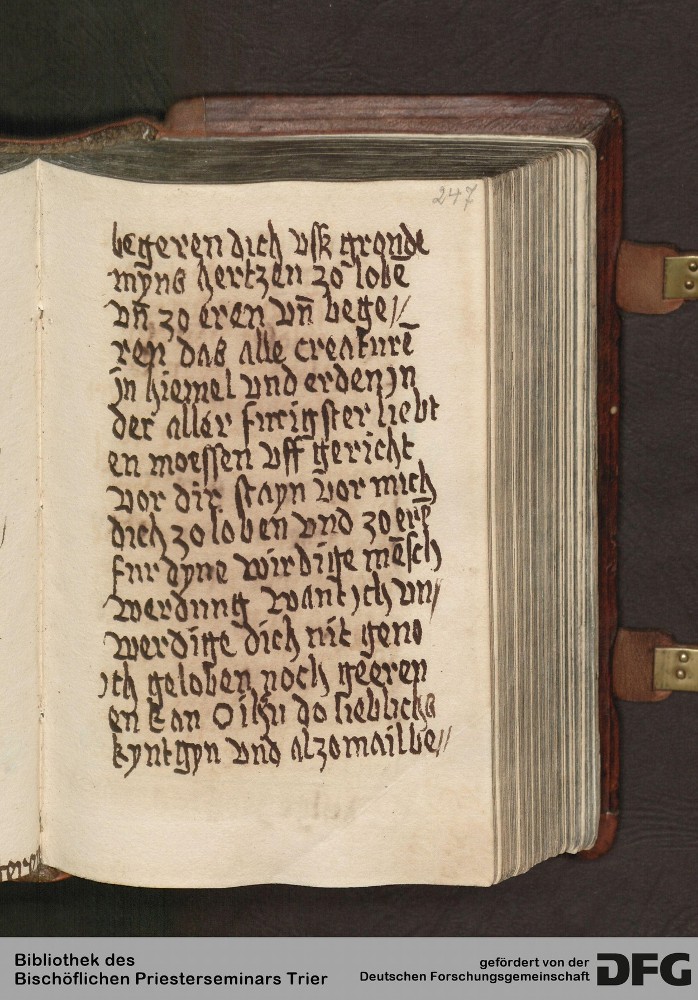 247
begeren dich vsß gronde
myns hertzen zo lobē
vn̄ zo eren vn̄ bege//
ren das alle creaturē
jn hiemel vnd erden jn
der aller furigster liebt
en moessen vff gericht
vor dir stayn vor mich
dich zo loben vnd zo erē
fur dyne wirdige mēsch
werdung want jch vn/
werdige dich nit geno
jch geloben noch geeren
en kan O ihū do lieblichs
kyntgyn vnd alzomail be//
Bibliothek des
Bischöflichen Priesterseminars Trier
gefördert von der
Deutschen Forschungsgemeinschaft
DFG